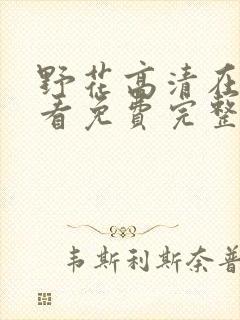 野花高清在
看免费完整
韦斯利斯奈普